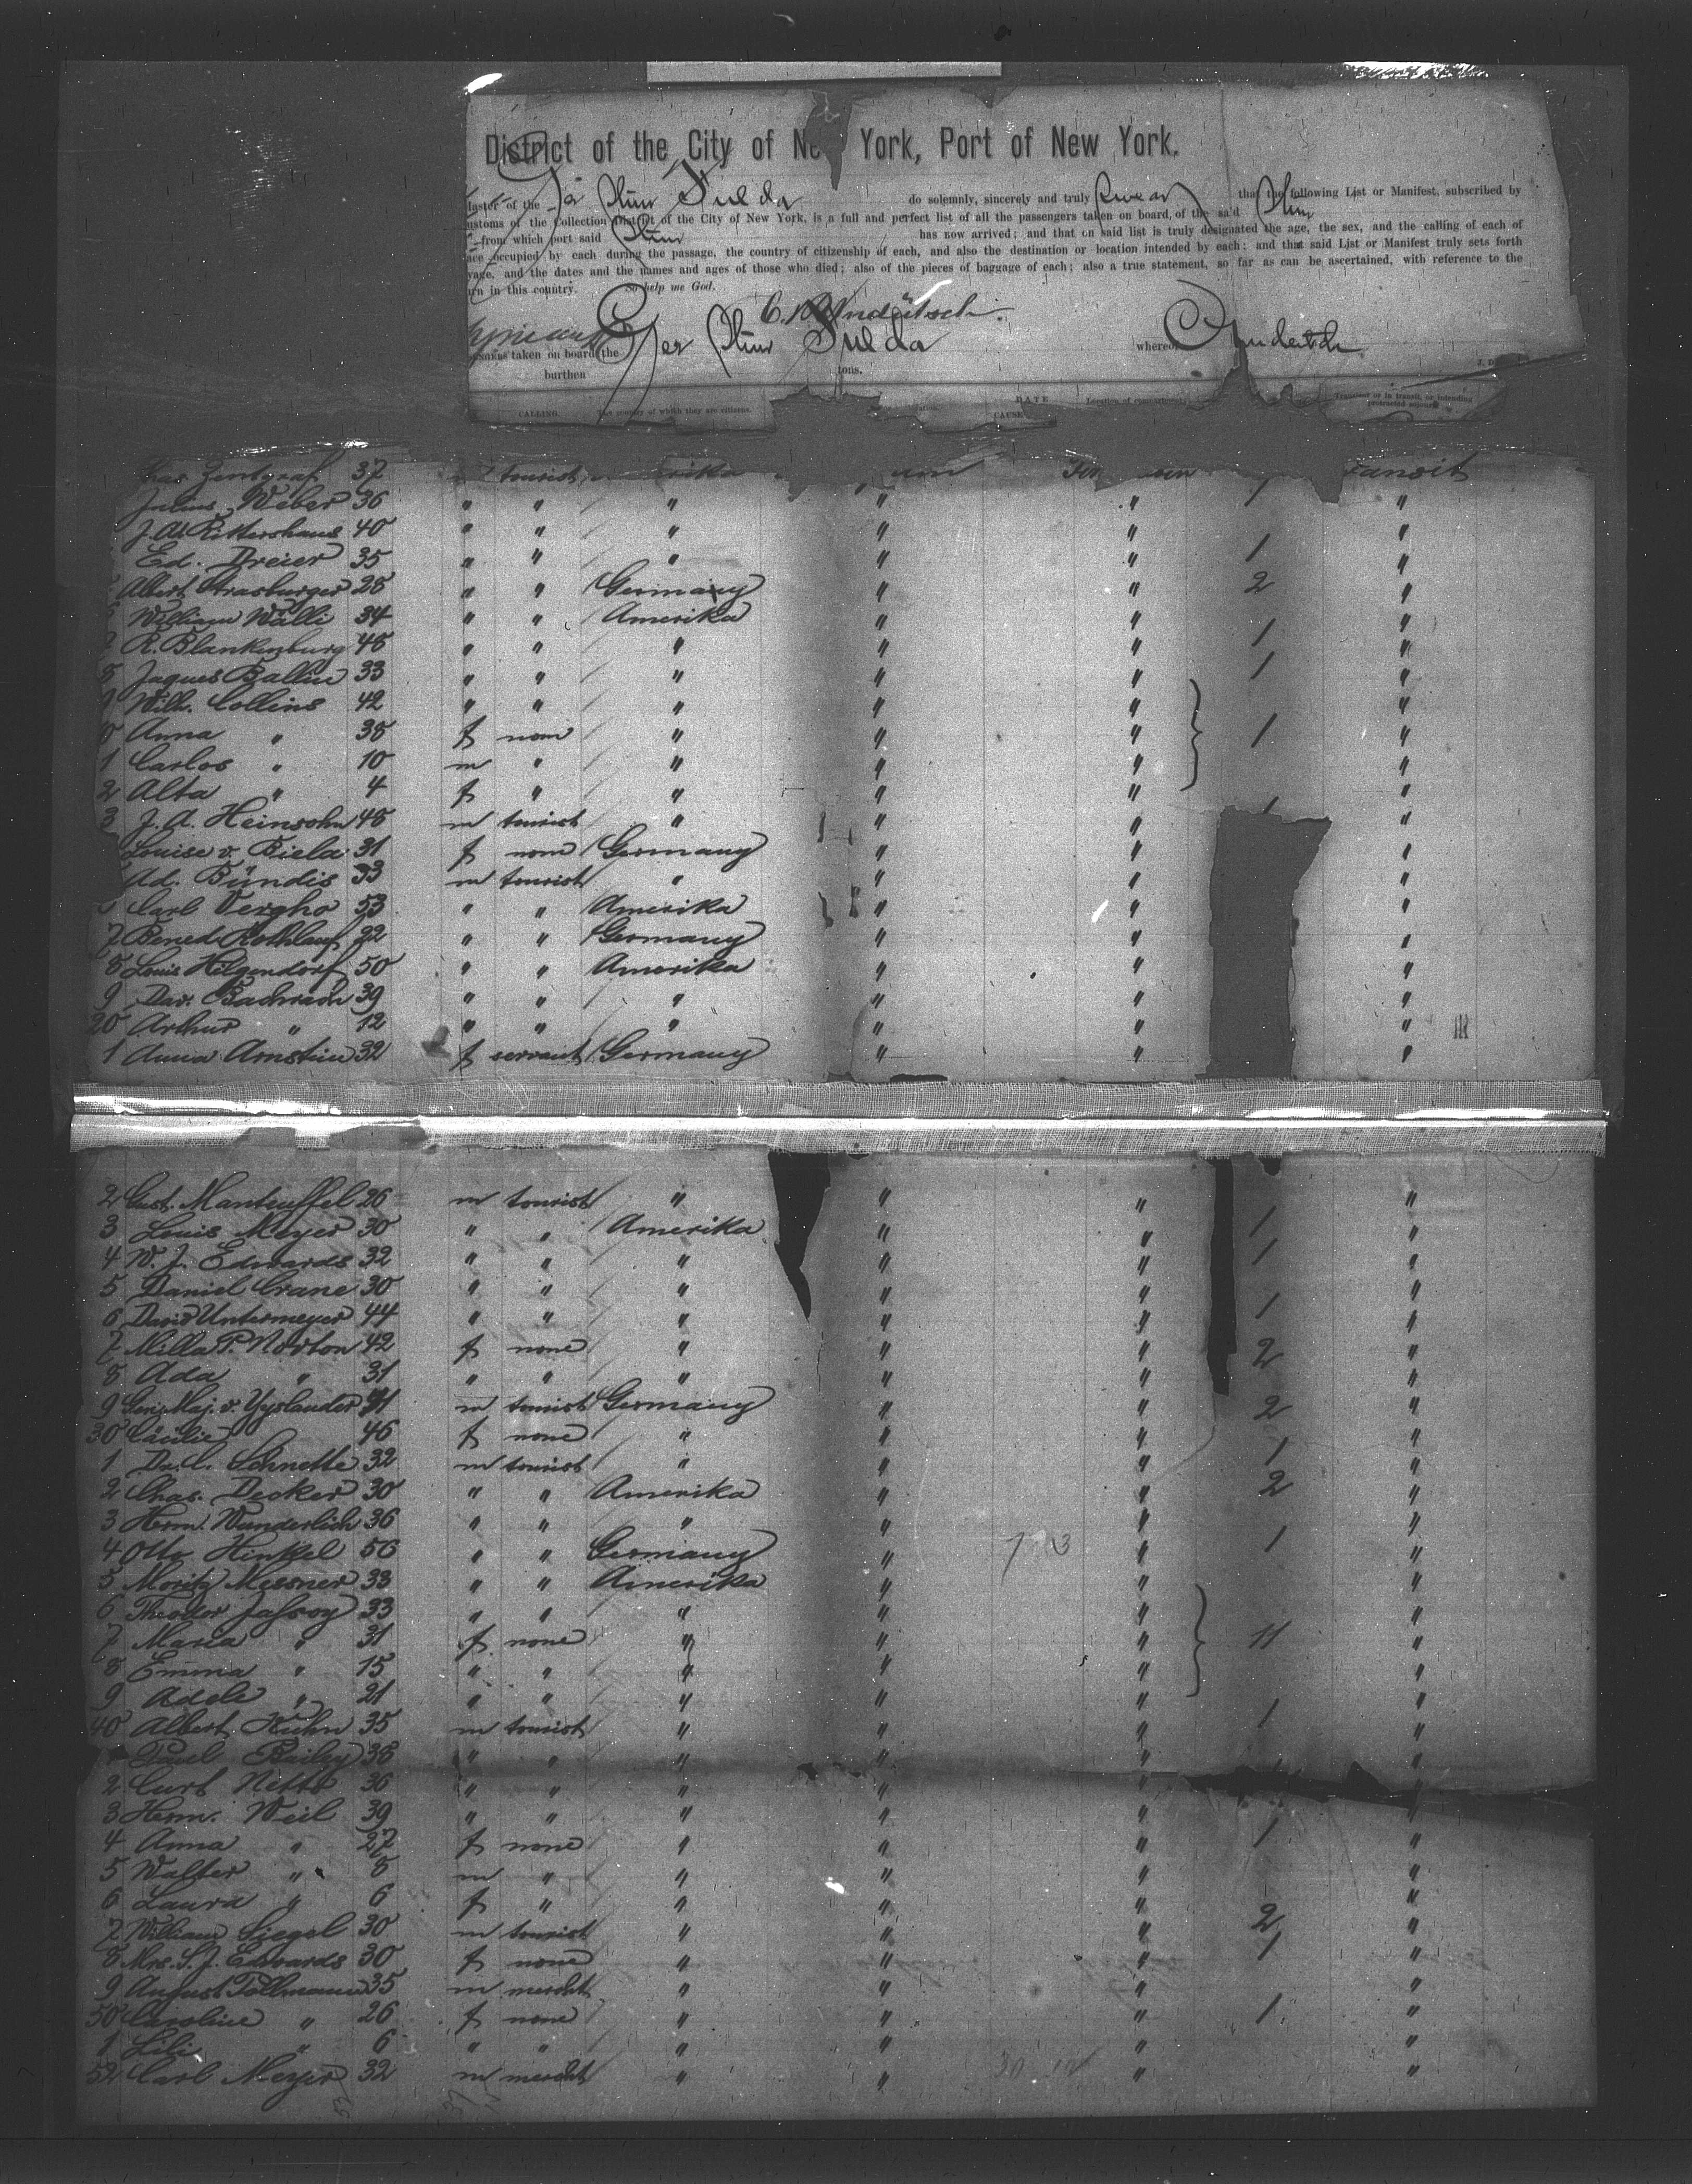 District of the City of New York, Port of New York.
Master of the Ger Stmr Fulda do solemnly, sincerely and truly swear that the following List or Manifest, subscribed by
ustoms of the Collection District of the City of New York, is a full and perfect list of all the passengers taken on board, of the sa'd Stmr
from which port said Stmr has now arrived; and that on said list is truly designated the age, the sex, and the calling of each of
ace occupied by each during the passage, the country of citizenship of each, and also the destination or location intended by each; and that said List or Manifest truly sets forth
yage, and the dates and the names and ages of those who died; also of the pieces of baggage of each; also a true statement, so far as can be ascertained, with reference to the
urn in this country. So help me God.
taken on board the Ger Stmr Fulda whereof
burthen tons.
CALLING. The country of which they are citizens. DATE CAUSE Location of compartment Transient or in transit, or intending protracted sojourn
Zentgraf 37 m tourist ansit
Julius Weber 36 " " " " " 1 "
J. A. Rittershaus 40 " " " " " "
Ed. Dreier 35 " " " " " 1 "
Albert Strasburger 28 " " Germany " " 2 "
William Wälli 34 " " Amerika " " "
7 R. Blankenburg 48 " " " " " 1 "
8 Jaques Ballin 33 " " " " " 1 "
9 Wilh. Collins 42 " " " " " "
0 Anna " 38 f none " " " 1 "
1 Carlos " 10 m " " " " "
2 Alta " 4 f " " " " "
3 J. A. Heinsohn 48 m tourist " " " 1 "
Louise v. Biela 31 f none Germany " " "
Ad. Bündis 33 m tourist " " " "
Carl Vergho 53 " " Amerika " " "
7 Bened. Rothlauf 22 " " Germany " " "
8 Louis Hilgendorf 50 " " Amerika " " "
9 Dav. Bachrach 39 " " " " " "
20 Arthur " 12 " " " " " "
1 Anna Arnstein 32 f servant Germany " " "
2 Gust. Manteuffel 26 m tourist " " " "
3 Louis Meyer 30 " " Amerika " " 1 "
4 W. J. Edwards 32 " " " " " 1 "
5 Daniel Crane 30 " " " " " "
6 David Untermeyer 44 " " " " " 1 "
7 Milla P. Norton 42 f none " " " 2 "
8 Ada " 31 " " " " " "
9 Gen. Maj. v. Xylander m tourist Germany " " 2 "
30 Cäcilie 46 f none " " " "
1 Dr. C. Schnette 32 m tourist " " " 1 "
2 Chas. Decker 30 " " Amerika " " 2 "
3 Herm. Wunderlich 36 " " " " " "
4 Otto Hinkel 56 " " Germany " " 1 "
5 Moritz Messner 33 " " Amerika " " "
6 Theodor Jassoy 33 " " " " " "
7 Maria " 31 f none " " " 11 "
8 Emma " 15 " " " " " "
9 Adele " 21 " " " " " "
40 Albert Kuhn 35 m tourist " " " 1 "
Bailey 38 " " " " " "
2 Curt Netto 36 " " " " " "
3 Herm. Weil 39 " " " " " "
4 Anna " 27 f none " " " 1 "
5 Walter " 8 m " " " " "
6 Laura " 6 f " " " " "
7 William Siegel 30 m tourist " " " 2 "
8 Mrs. S. J. Edwards 30 f none " " " 1 "
9 August Tollmann 35 m mercht " " " "
50 Caroline " 26 f none " " " 1 "
1 Lili " 6 " " " " " "
52 Carl Meyer 32 m mercht " " " "